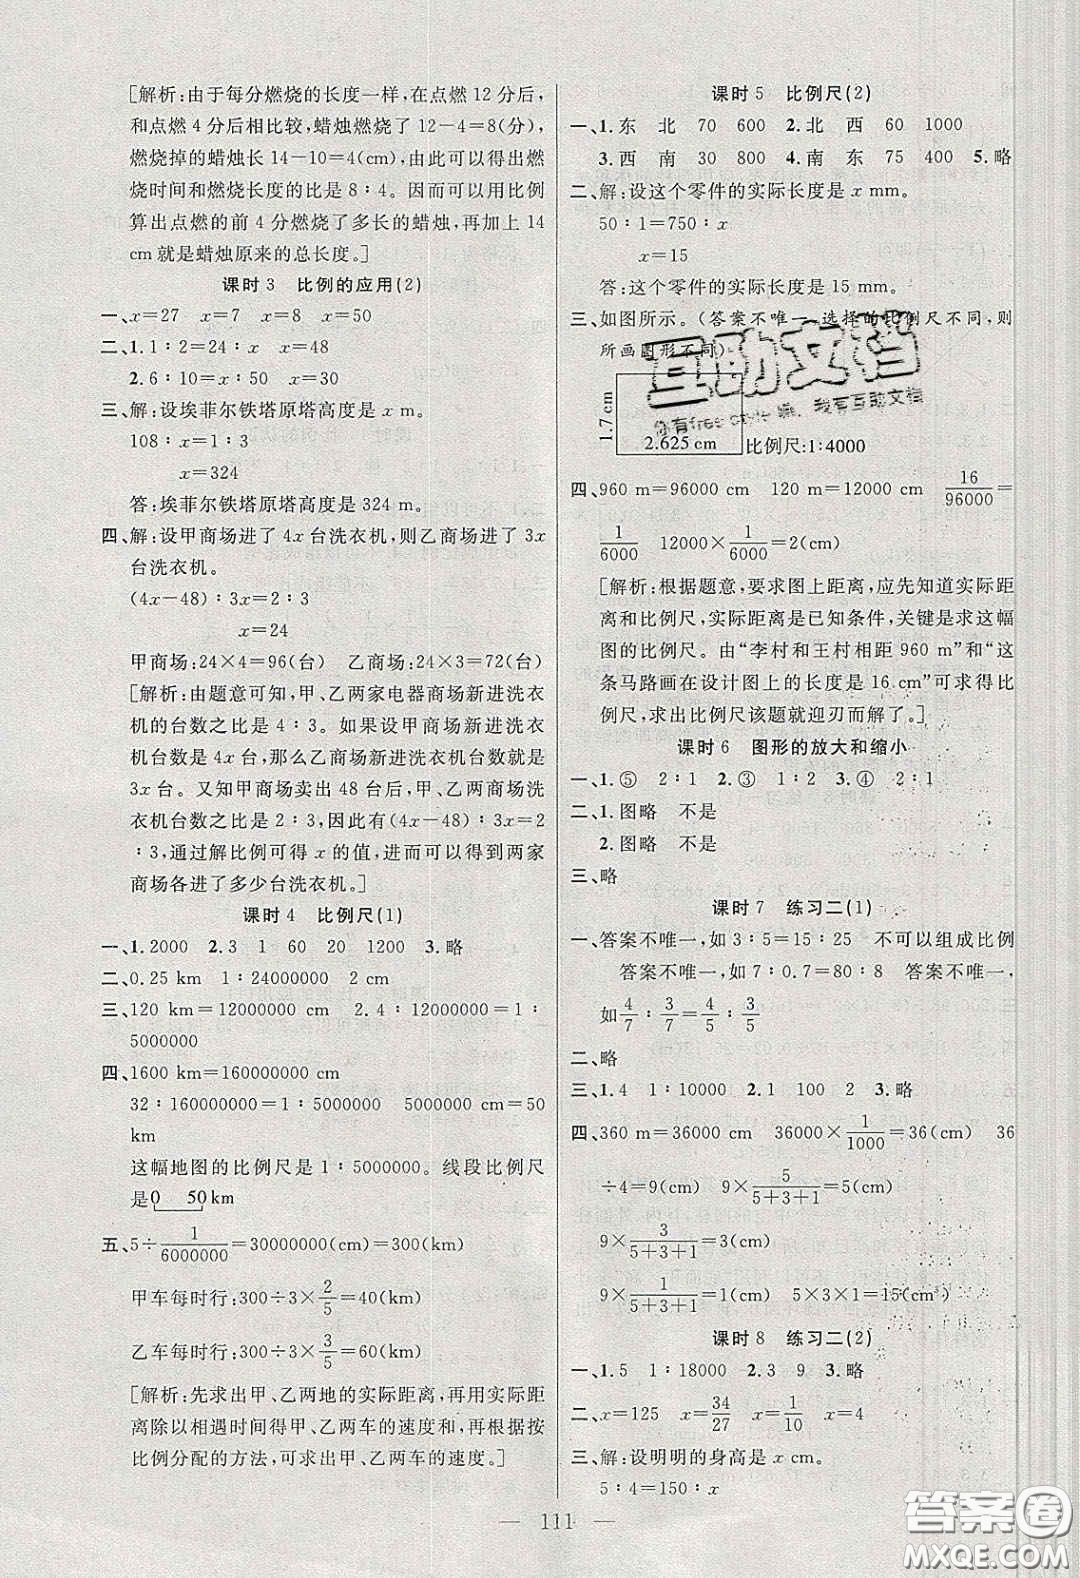 [解析:由于每分燃烧的长度一样,在点燃12分后,
和点燃4分后相比较,蜡烛燃烧了12-4=8(分),
燃烧掉的蜡烛长14-10=4(cm),由此可以得出燃
烧时间和燃烧长度的比是8∶4。因而可以用比例
算出点燃的前4分燃烧了多长的蜡烛,再加上14
cm就是蜡烛原来的总长度。]
课时3 比例的应用(2)
一、x=27 x=7 x=8 x=50
二、1.1∶2=24∶x x=48
2.6∶10=x∶50 x=30
三、解:设埃菲尔铁塔原塔高度是x m。
108∶x=1∶3
x=324
答:埃菲尔铁塔原塔高度是324 m。
四、解:设甲商场进了4x台洗衣机,则乙商场进了3x
台洗衣机。
(4x-48)∶3x=2∶3
x=24
甲商场:24×4=96(台) 乙商场:24×3=72(台)
[解析:由题意可知,甲、乙两家电器商场新进洗衣
机的台数之比是4∶3。如果设甲商场新进洗衣机
台数是4x台,那么乙商场新进洗衣机的台数是3x
台。又知甲商场卖出48台后,甲、乙两商场剩余洗
衣机台数之比是2∶3。因此有(4x-48)∶3x=2
∶3,通过解比例可得x的值,从而可以得到两家
商场各进了多少台洗衣机。]
课时4 比例尺(1)
一、1.2000 2.3 1 60 20 1200 3.略
二、0.25 km 1∶24000000 2 cm
三、120 km=12000000 cm 2.4∶12000000=1∶
5000000
四、1600 km=160000000 cm
32∶160000000=1∶5000000 5000000 cm=50
km
这幅地图的比例尺是1∶5000000。线段比例尺
是0 50 km
五、5÷1/6000000=30000000(cm)=300(km)
甲车每时行:300÷3×2/5=40(km)
乙车每时行:300÷3×3/5=60(km)
[解析:先求出甲、乙两地的实际距离,再用实际距
离除以相遇时间得甲、乙两车的速度和,再根据按
比例分配的方法,可求出甲、乙两车的速度。]
课时5 比例尺(2)
一、1.东 北 70 600 2.北 西 60 1000
3.西 南 30 800 4.南 东 75 400 5.略
二、解:设这个零件的实际长度是x mm。
50∶1=750∶x
x=15
答:这个零件的实际长度是15 mm。
三、如图所示。(答案不唯一,选择的比例尺不同,则
所画图形不同)
互助文档
你有free style嘛,我有互助文档
1.7 cm
2.625 cm 比例尺:1:4000
四、960 m=96000 cm 120 m=12000 cm 16/96000=
1/6000 12000×1/6000=2(cm)
[解析:根据题意,要求图上距离,应先知道实际距
离和比例尺,实际距离是已知条件,关键是求这幅
图的比例尺。由“李村和王村相距960 m”和“这
条马路画在设计图上的长度是16 cm”可求得比
例尺,求出比例尺该题就迎刃而解了。]
课时6 图形的放大和缩小
一、1.⑤ 2∶1 2.③ 1∶2 3.④ 2∶1
二、1.图略 不是
2.图略 不是
三、略
课时7 练习二(1)
一、答案不唯一,如3∶5=15∶25 不可以组成比例
答案不唯一,如7∶0.7=80∶8 答案不唯一,
如4/7∶3/7=4/5∶3/5
二、略
三、1.4 1∶10000 2.10 100 2 3.略
四、360 m=36000 cm 36000×1/1000=36(cm) 36
÷4=9(cm) 9×5/5+3+1=5(cm)
9×3/5+3+1=3(cm)
9×1/5+3+1=1(cm) 5×3×1=15(cm³)
课时8 练习二(2)
一、1.5 1∶18000 2.3 9 3.略
二、x=125 x=34/27 x=1/10 x=4
三、解:设明明的身高是x cm。
5∶4=150∶x
111
答案圈
MXQE.COM